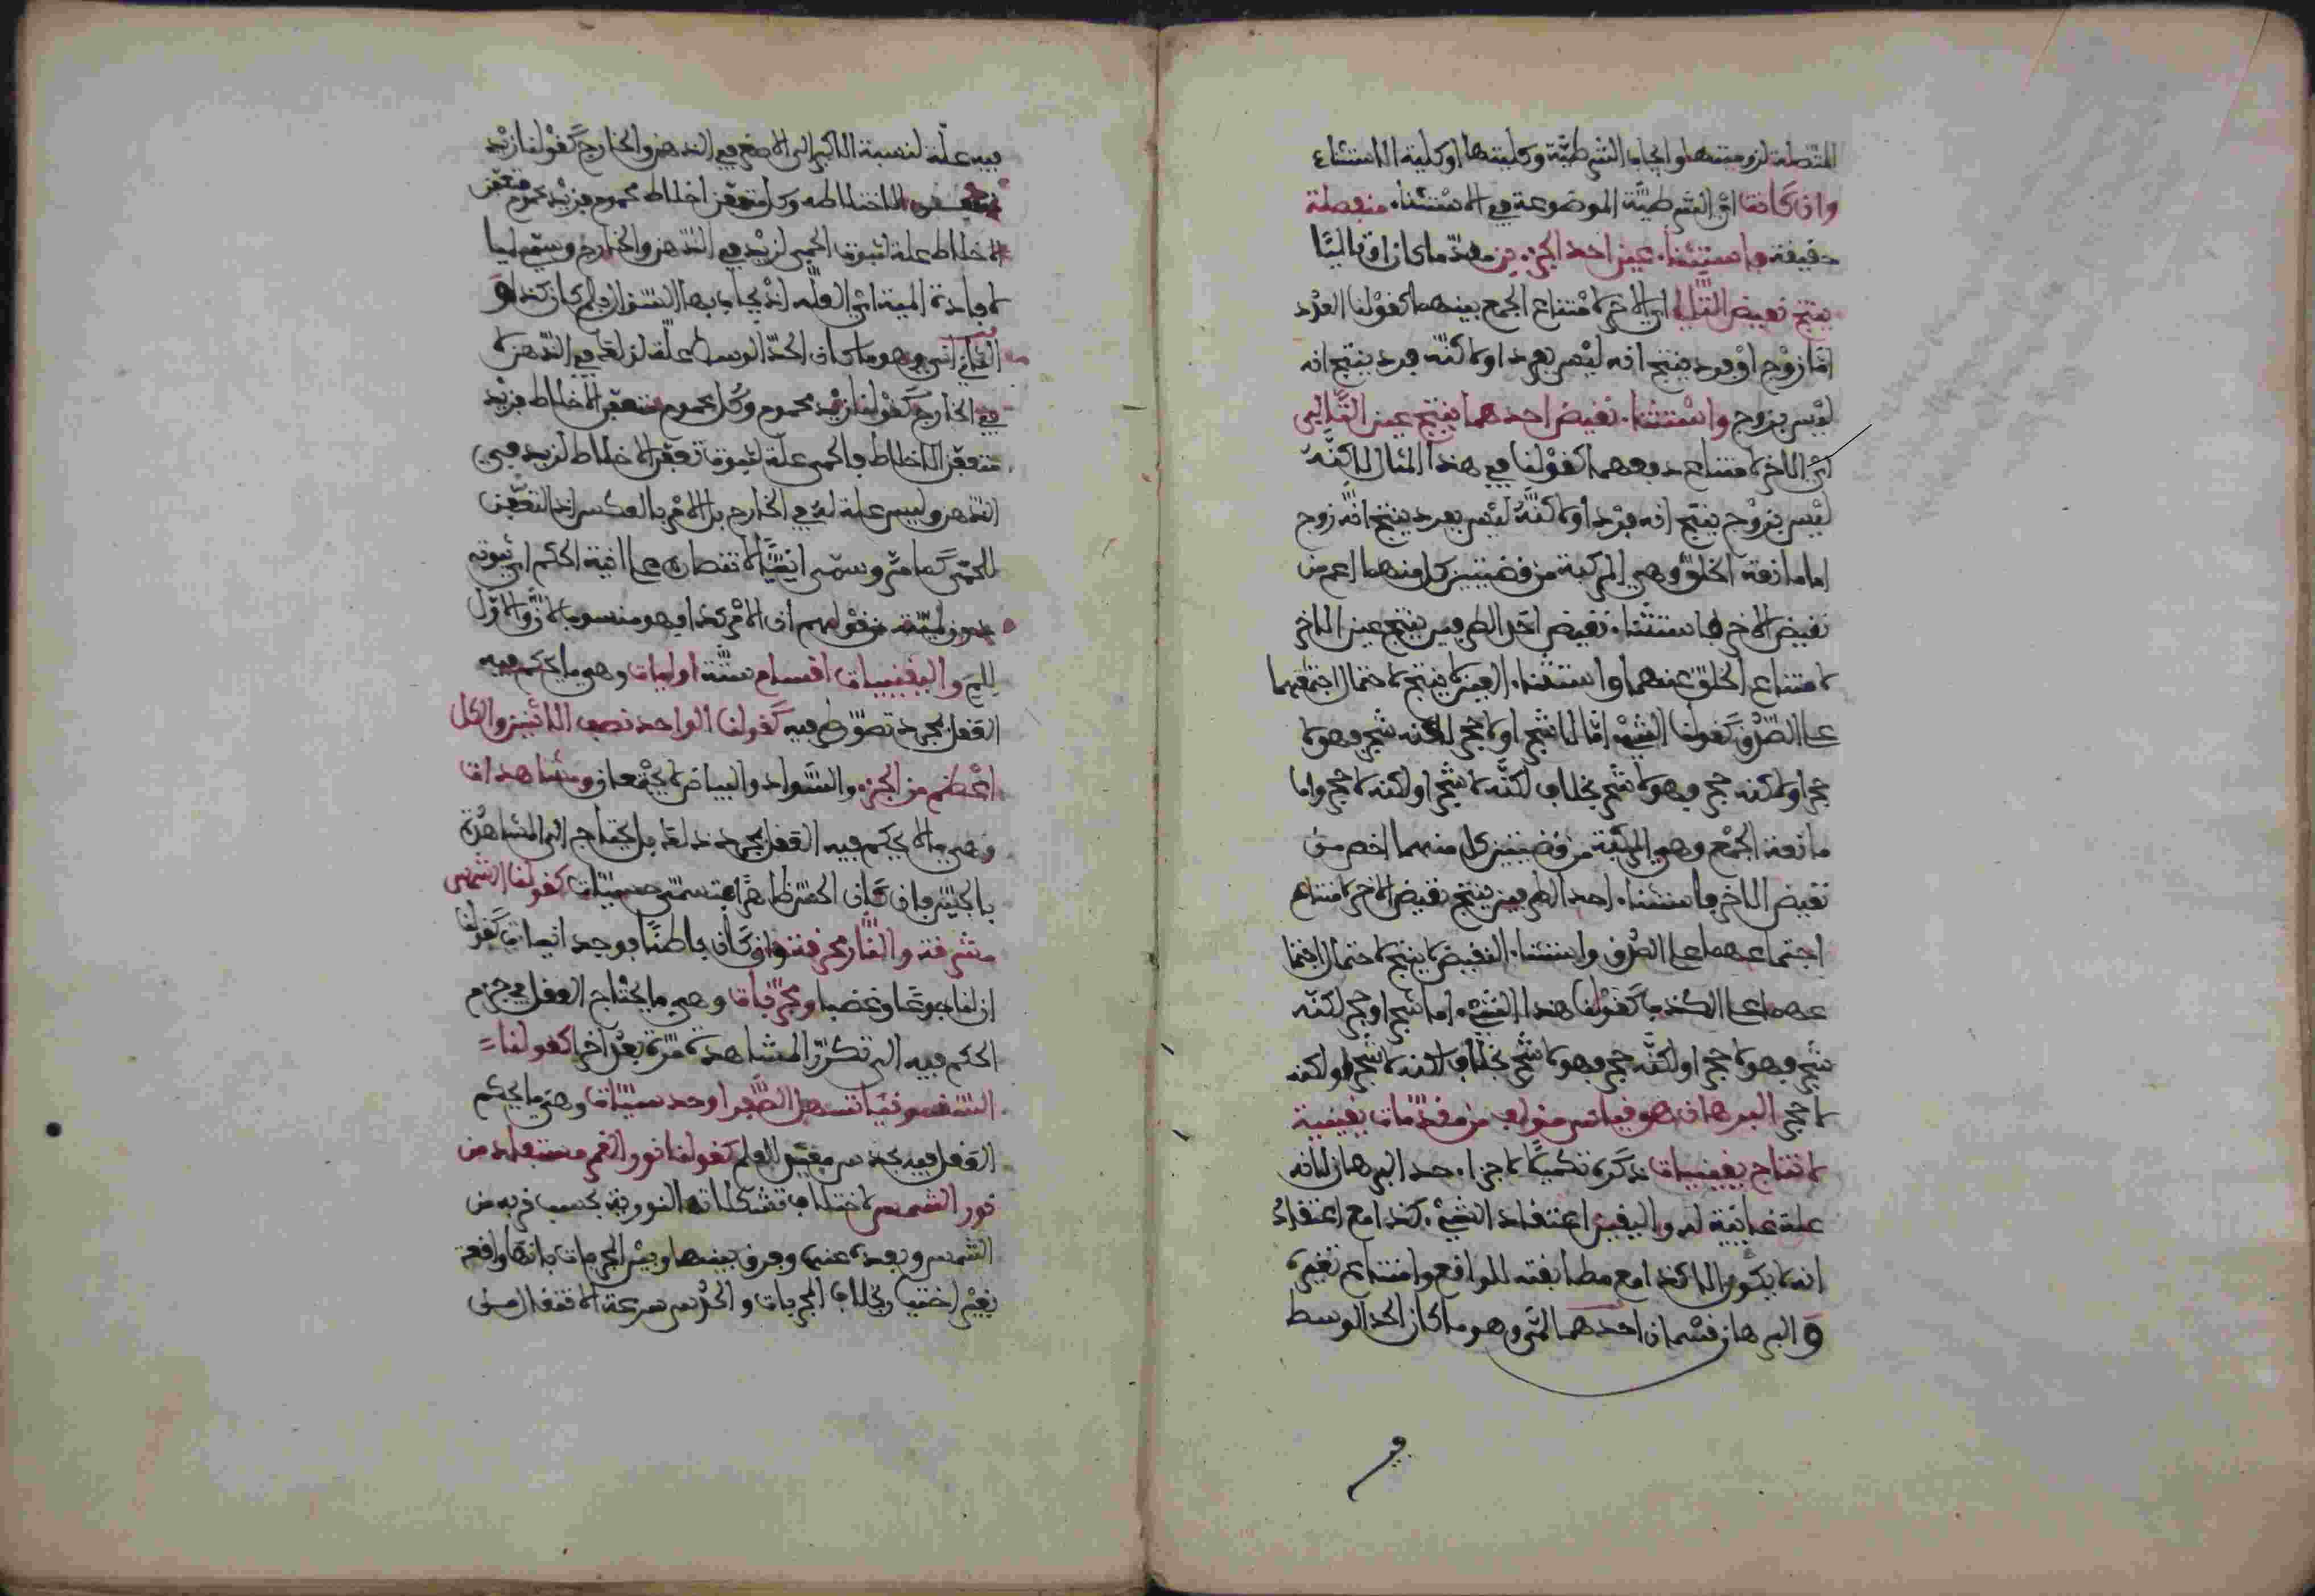 المتصلة لزوميتها وايجاب الشرطية وكليتها او كلية الاستثناء
وان كانت اي الشرطية الموضوعة في الاستثناء منفصلة
حقيقة فاستثناء عين احد الجزءين مقدما كان او تاليا
ينتج نقيض التالي اي الاخر لامتناع الجمع بينهما كقولنا العدد
اما زوج او فرد ينتج انه ليس بفرد او لاكنه فرد ينتج انه
ليس بزوج واستثناء نقيض احدهما ينتج عين التالي
اي الاخر لامتناع رفعهما كقولنا في هذا المثال لاكنه
ليس بزوج ينتج انه فرد او لاكنه ليس بفرد ينتج انه زوج
اما مانعة الخلو وهي المركبة من قضيتين كل منهما اعم من
نقيض الاخر فاستثناء نقيض احد الطرفين ينتج عين الاخر
لامتناع الخلو عنهما واستثناء العين لا ينتج لاحتمال اجتماعهما
على الصدق كقولنا الشيء اما لا شجر او لا حجر لاكنه شجر فهو لا
حجر او لاكنه حجر فهو لا شجر بخلاف لكنه لا شجر او لكنه لا حجر واما
مانعة الجمع وهي المركبة من قضيتين كل منهما اخص من
نقيض الاخر فاستثناء احد الطرفين ينتج نقيض الاخر لامتناع
اجتماعهما على الصدق واستثناء النقيض لا ينتج لاحتمال اجتما
عهما على الكذب كقولنا هذا الشيء اما شجر او حجر لكنه
شجر فهو لا حجر او لكنه حجر فهو لا شجر بخلاف لكنه لا شجر او لكنه
لا حجر البرهان هو قياس مولف من مقدمات يقينية
لانتاج يقينيات ذكره تكميلا لاجزاء حد البرهان لانه
علة غائية له واليقين اعتقاد الشيء كذا مع اعتقاد
انه لا يكون الا كذا مع مطابقته للواقع وامتناع تغيره
والبرهان قسمان احدهما لمي وهو ما كان الحد الوسط
فيه
فيه علة لنسبة الاكبر الى الاصغر في الذهن والخارج كقولنا زيد
متعفن الاخلاط وكل متعفن اخلاط محموم فزيد محموم فتعفن
الاخلاط علة لثبوت الحمى لزيد في الذهن والخارج وسمي لميا
لافادة اللمية اي العلة اذ يجاب بها السؤال بلم كان كذا و
الثاني اني وهو ما كان الحد الوسط علة لذلك في الذهن لا
في الخارج كقولنا زيد محموم وكل محموم متعفن الاخلاط فزيد
متعفن الاخلاط فالحمى علة لثبوت تعفن الاخلاط لزيد في
الذهن وليس علة له في الخارج بل الامر بالعكس اذ التعفن
للحمى كما مر وسمي انيا لاقتصاره على انية الحكم اي ثبوته
دون لميته من قولهم ان الامر كذا فهو منسوب لان والاول
للم واليقينيات اقسام ستة اوليات وهي ما يحكم فيه
العقل بمجرد تصور طرفيه كقولنا الواحد نصف الاثنين والكل
اعظم من الجزء والسواد والبياض لا يجتمعان ومشاهدات
وهي ما لا يحكم فيه العقل بمجرد ذلك بل يحتاج الى المشاهدة
بالحس فان كان الحس ظاهرا فتسمى حسيات كقولنا الشمس
مشرقة والنار محرقة وان كان باطنا فوجدانيات كقولنا
ان لنا جوعا وغضبا ومجربات وهي ما يحتاج العقل في جزم
الحكم فيه الى تكرر المشاهدة مرة بعد اخرى كقولنا
السقمونيا تسهل الصفرا وحدسيات وهي ما يحكم
العقل فيه بحدس مفيد للعلم كقولنا نور القمر مستفاد من
نور الشمس لاختلاف تشكلاته النورية بحسب قربه من
الشمس وبعده عنها وفرق بينها وبين المجربات بانها واقعة
بغير اختيار بخلاف المجربات والحدس سرعة الانتقال من